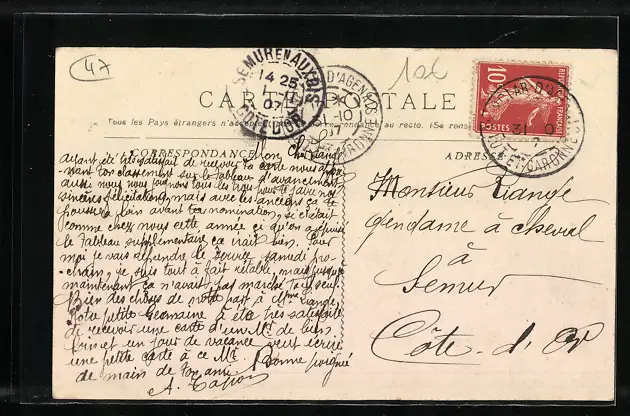 47
10c
SEMUR EN AUXOIS
14 25
1
07
COTE D'OR
D'AGEN
31-10
GARONNE
10
REPUBLIQUE FRANÇAISE
POSTES
CARTE POSTALE
Tous les Pays étrangers n'acceptent au recto. (Se rense
CORRESPONDANCE
ADRESSE
Mon cher
ayant été très satisfait de recevoir ta carte nous
ton classement sur le tableau d'avancement
aussi nous nous joignons tous les trois pour te faire nos
sincères félicitations, mais avec les anciens ça te
poussera loin avant ta nomination, si c'était
comme chez nous cette année ci qu'on a
le tableau supplémentaire ça irait bien. Pour
moi je vais reprendre le service samedi pro-
chain, je suis tout à fait rétabli, mais jusque
maintenant ça n'avait pas marché tout seul.
Bien des choses de notre part à Mme
Notre petite Germaine a été très satisfaite
de recevoir une carte d'un Mr de
et un jour de vacance peut
une petite carte à ce Mr. Bonne poignée
de main de ton ami
A.
Monsieur
gendarme à cheval
à
Semur
Côte-d'Or